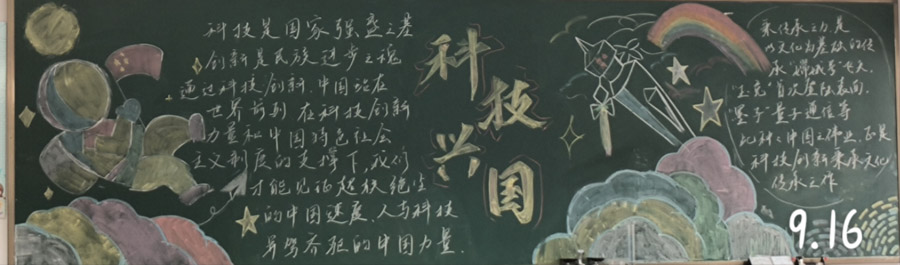 科技是国家强盛之基
创新是民族进步之魂
通过科技创新,中国站在
世界前列 在科技创新
力量和中国特色社会
主义制度的支撑下,我们
才能见证超级绝尘
的中国速度,人与科技
并驾齐驱的中国力量.
科技兴国
承传承之力,是
以文化为基故的传
承"嫦娥号"飞天,
"玉兔"首次登陆表面,
"墨子"量子通信等
此种之中国之伟业,正是
科技创新乘承文化
传承之作
9.16